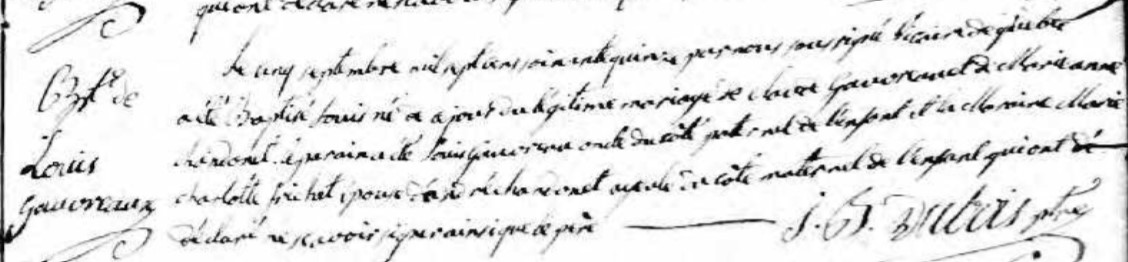 qui ont déclaré ne
Bpte. de
Louis
Gauvreaux
Le cinq septembre mil sept cens soixante quinze par nous soussigné vicaire de quebec
a été Baptisé Louis né de ce jour du légitime mariage de Claude Gauvreau et de Marie anne
chandonet le parain a été Louis Gauvreau oncle du côté paternel de l'enfant et la Maraine Marie
charlotte frichet épouse d'andré chandonet ayeule du côté maternel de l'enfant qui ont dé
déclaré ne sçavoir signer ainsi que le père
J. B. Dubois ptre